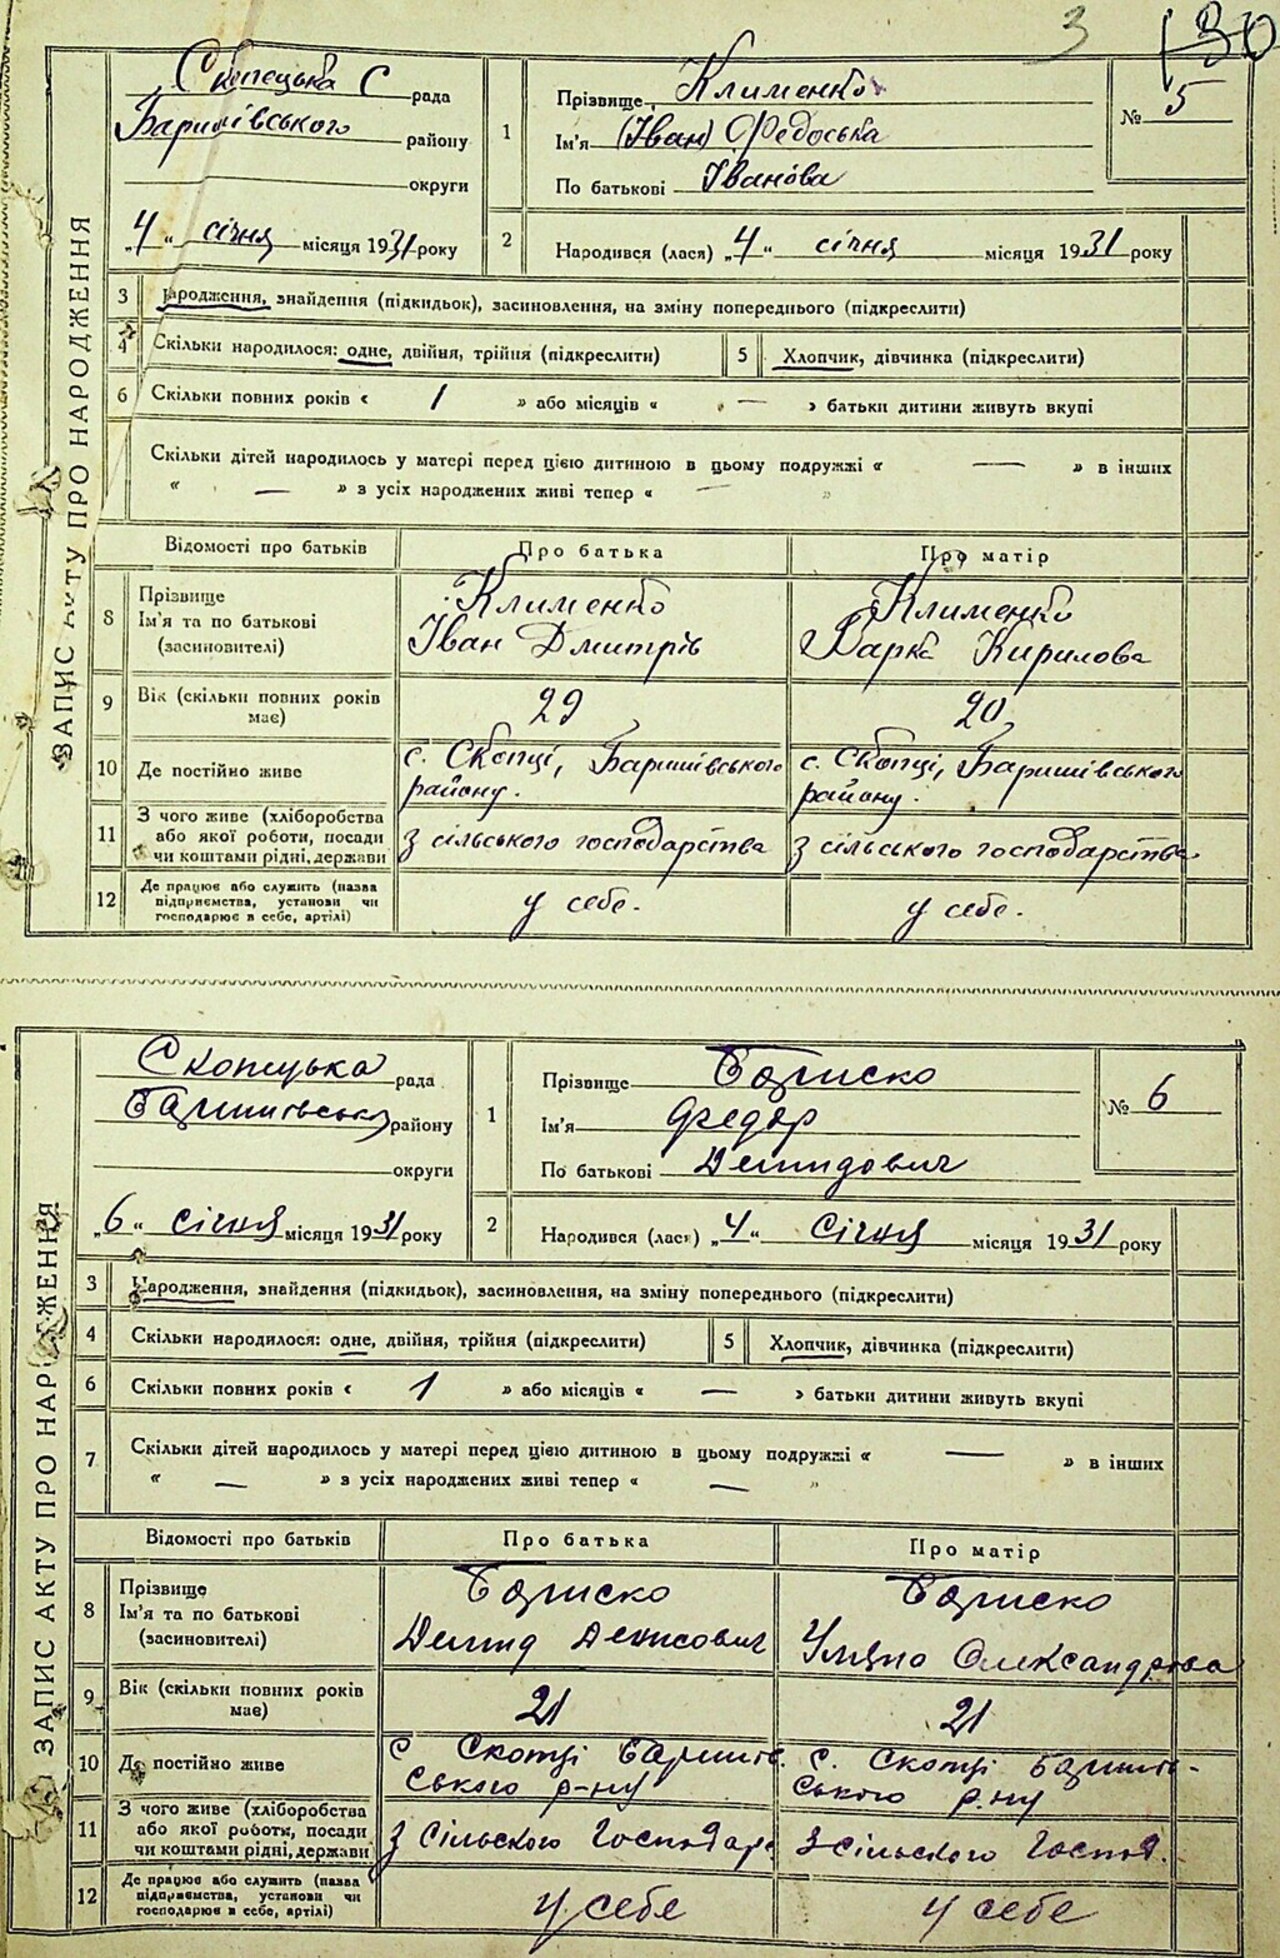 3 130
Скопецька С рада
Баришівського району
округи
„4“ січня місяця 1931 року
1
Прізвище Клименко
Ім'я (Іван) Федоська
По батькові Іванова
№ 5
2
Народився (лася) „4“ січня місяця 1931 року
ЗАПИС АКТУ ПРО НАРОДЖЕННЯ
3 Народження, знайдення (підкидьок), засиновлення, на зміну попереднього (підкреслити)
4 Скільки народилося: одне, двійня, трійня (підкреслити) 5 Хлопчик, дівчинка (підкреслити)
6 Скільки повних років « 1 » або місяців « — » батьки дитини живуть вкупі
Скільки дітей народилось у матері перед цією дитиною в цьому подружжі « — » в інших
« — » з усіх народжених живі тепер « — »
Відомості про батьків Про батька Про матір
8 Прізвище Клименко Клименко
Ім'я та по батькові Іван Дмитрів Варка Кирилова
(засиновителі)
9 Вік (скільки повних років 29 20
має)
10 Де постійно живе с. Скопці, Баришівського с. Скопці, Баришівського
району. району.
11 З чого живе (хліборобства
або якої роботи, посади з сільського господарства з сільського господарства
чи коштами рідні, держави
12 Де працює або служить (назва
підприємства, установи чи у себе. у себе.
господарює в себе, артілі)
Скопецька рада
Баришівськ району
округи
„6“ січня місяця 1931 року
1
Прізвище Бариско
Ім'я Федор
По батькові Демидович
№ 6
2
Народився (лася) „4“ Січня місяця 1931 року
ЗАПИС АКТУ ПРО НАРОДЖЕННЯ
3 Народження, знайдення (підкидьок), засиновлення, на зміну попереднього (підкреслити)
4 Скільки народилося: одне, двійня, трійня (підкреслити) 5 Хлопчик, дівчинка (підкреслити)
6 Скільки повних років « 1 » або місяців « — » батьки дитини живуть вкупі
7 Скільки дітей народилось у матері перед цією дитиною в цьому подружжі « — » в інших
« — » з усіх народжених живі тепер « — »
Відомості про батьків Про батька Про матір
8 Прізвище Бариско Бариско
Ім'я та по батькові Демид Денисович Уляна Олександрова
(засиновителі)
9 Вік (скільки повних років 21 21
має)
10 Де постійно живе с Скопці Баришів. с. Скопці Баришів-
ського р-ну ського р.ну
11 З чого живе (хліборобства
або якої роботи, посади З Сільского Господарс З Сільского Господ.
чи коштами рідні, держави
12 Де працює або служить (назва
підприємства, установи чи у себе у себе
господарює в себе, артілі)